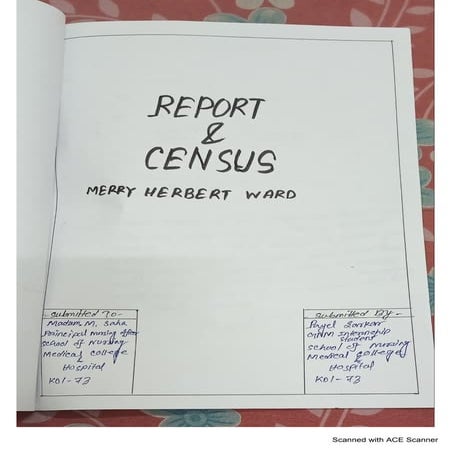 REPORT
&
CENSUS
MERRY HERBERT WARD
Submitted To-
Madam, M. Saha
Principal nursing officer
School of Nursing
Medical College
&
Hospital
KOl-73
Submitted By-
Payel Sarkar
GNM Internship
Student
School of Nursing
Medical College
&
Hospital
KOl-73
Scanned with ACE Scanner